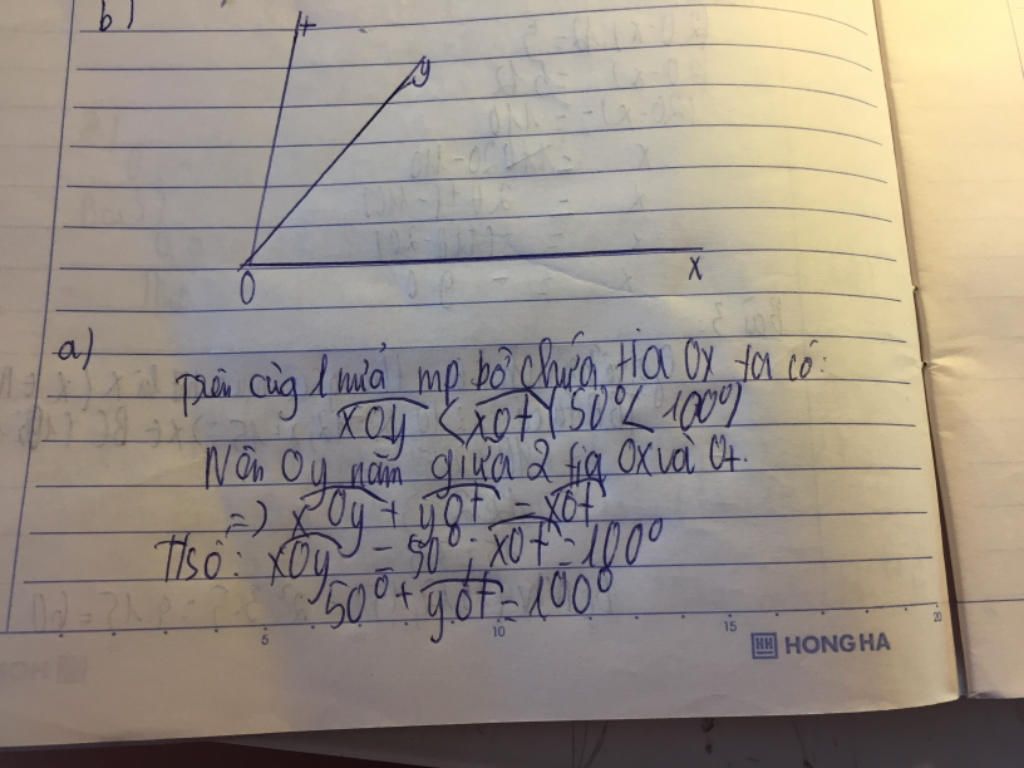 b)
t
y
O
x
a)
Trên cùg 1 nửa mp bờ chứa tia Ox ta có:
xOy < xOt (50° < 100°)
Nên Oy nằm giữa 2 tia Ox và Ot.
=) xOy + yOt = xOt
Thsố: xOy = 50°; xOt = 100°
50° + yOt = 100°
5 10 15 20
HONG HA